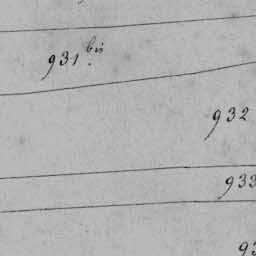 931 bis
932
933